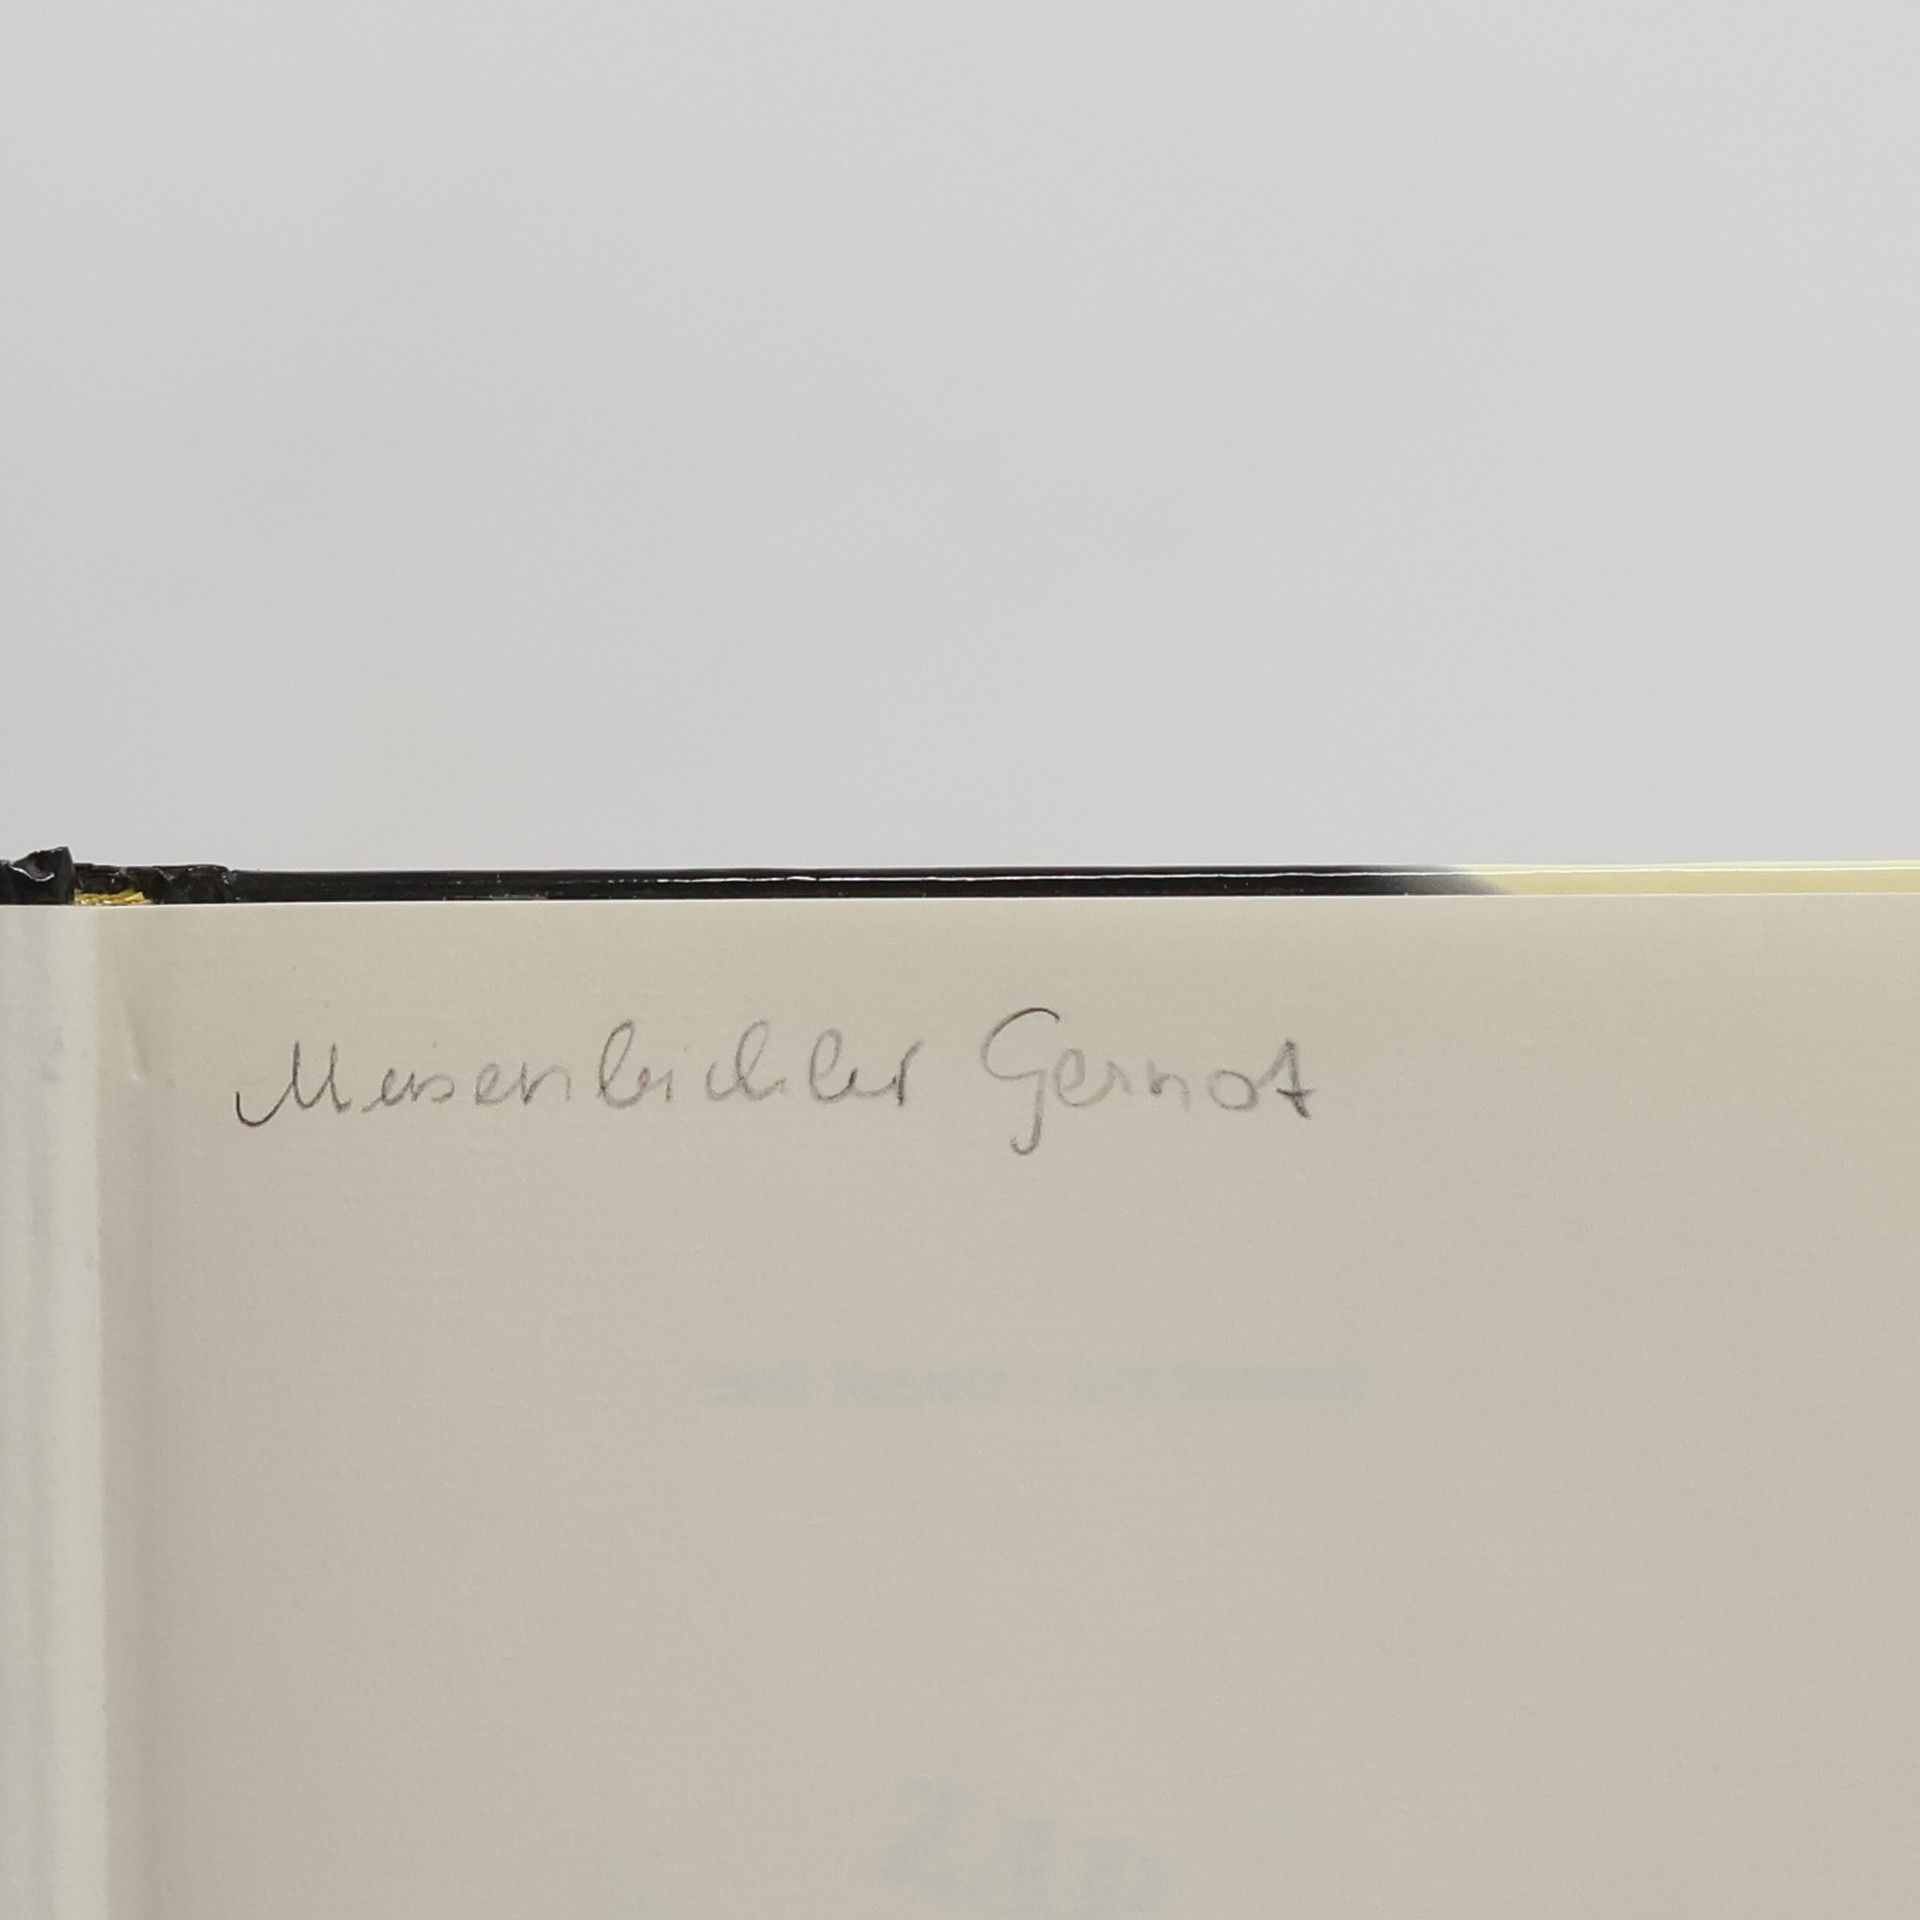 Meisenbichler Gernot